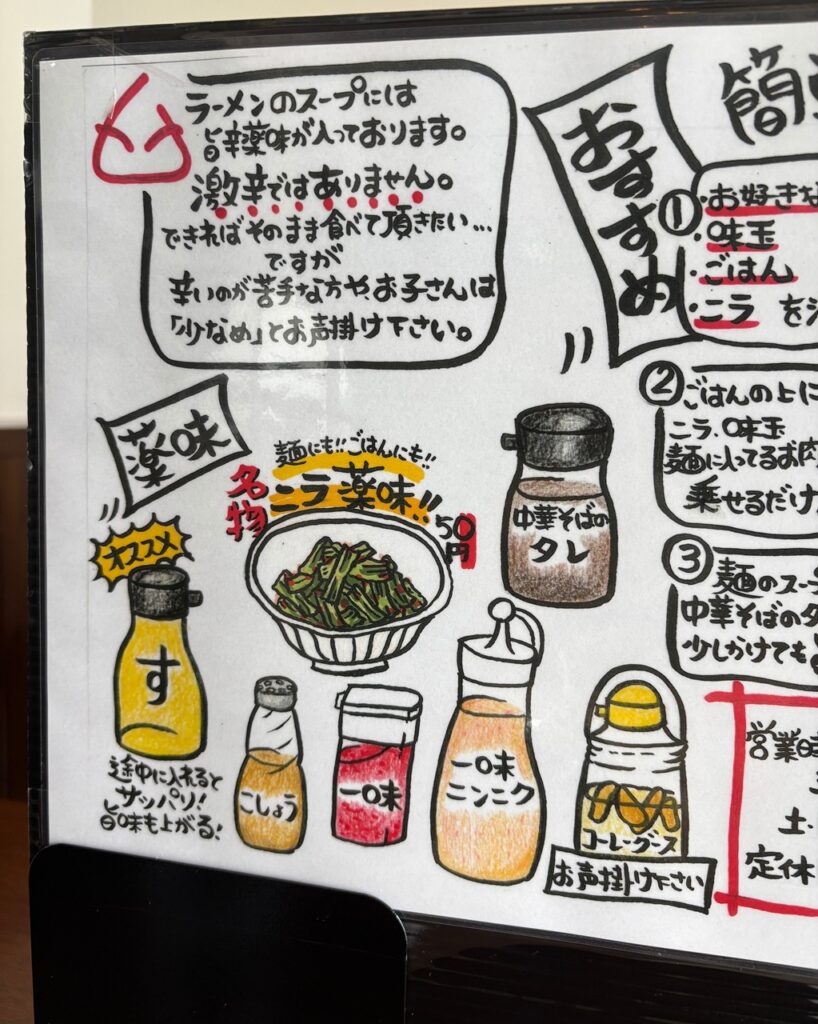 ラーメンのスープには
旨辛薬味が入っております。
激辛ではありません。
できればそのまま食べて頂きたい…
ですが
辛いのが苦手な方や、お子さんは
「少なめ」とお声掛け下さい。
薬味
麺にも!!ごはんにも!!
名物
ニラ薬味!!
50円
オススメ
す
途中に入れると
サッパリ!
旨味も上がる!
こしょう
一味
一味
ニンニク
中華そばの
タレ
コーレーグース
お声掛け下さい
おすすめ
簡
①・お好きな
・味玉
・ごはん
・ニラ を
②ごはんの上に
ニラ、味玉
麺に入ってるお肉
乗せるだけ
③麺のスー
中華そばのタ
少しかけても
営業時
土・
定休